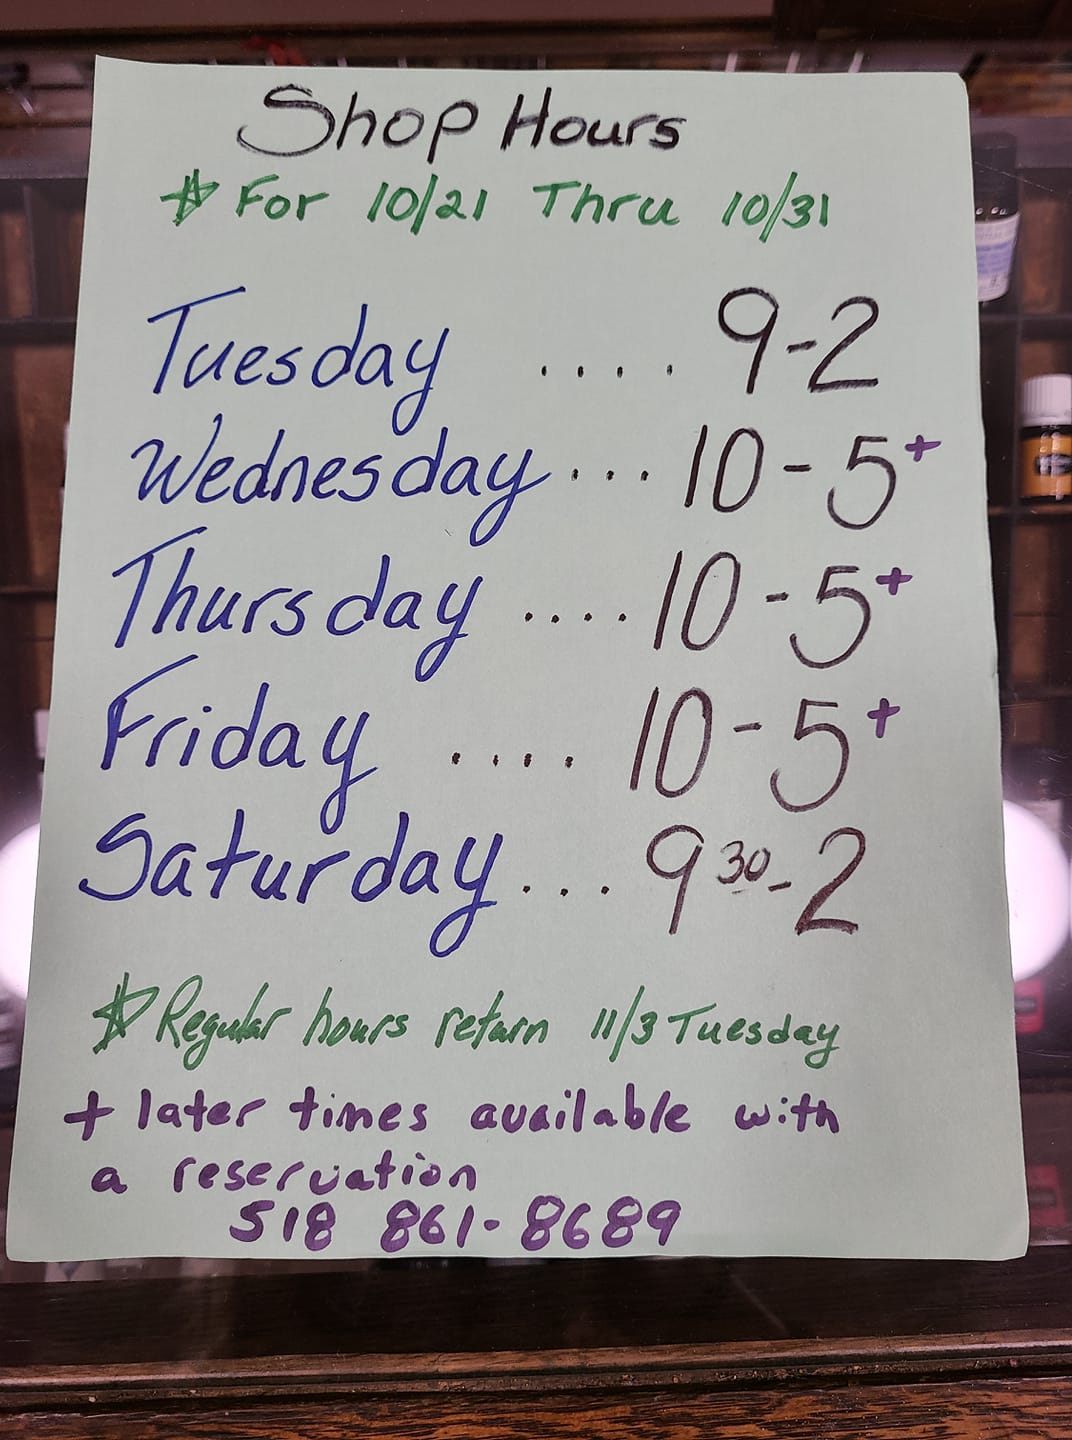 Shop Hours
☆ For 10/21 Thru 10/31
Tuesday .... 9-2
Wednesday ... 10-5+
Thursday .... 10-5+
Friday .... 10-5+
Saturday ... 9 30-2
☆ Regular hours return 11/3 Tuesday
+ later times available with
a reservation
518 861-8689